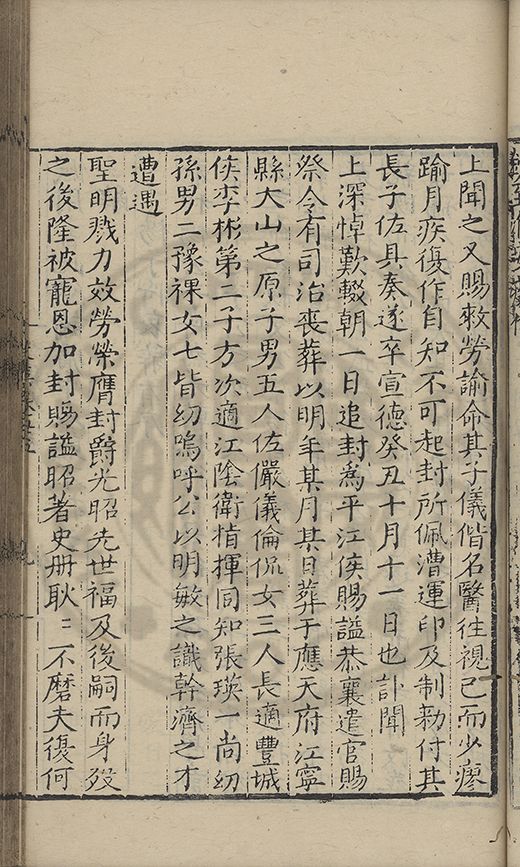 上聞之又賜敕勞諭命其子儀偕名醫往視已而少瘳
踰月疾復作自知不可起封所佩漕運印及制勑付其
長子佐具奏遂卒宣德癸丑十月十一日也訃聞
上深悼歎輟朝一日追封爲平江侯賜謚恭襄遣官賜
祭令有司治喪葬以明年某月某日葬于應天府江寧
縣大山之原子男五人佐儼儀倫侃女三人長適豐城
侯李彬第二子方次適江陰衛指揮同知張瑛一尚幼
孫男二豫祼女七皆幼嗚呼公以明敏之識幹濟之才
遭遇
聖明戮力效勞榮膺封爵光昭先世福及後嗣而身歿
之後隆被寵恩加封賜謚昭著史册耿〻不磨夫復何